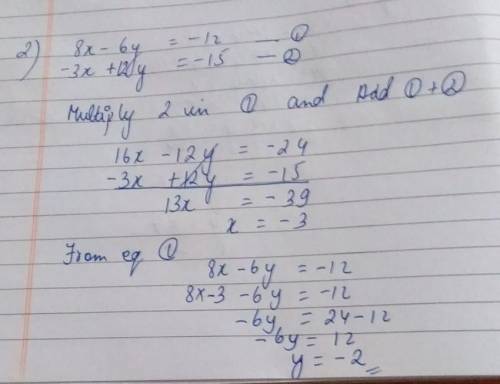 2) 8x - 6y = -12 — ①
-3x + 12y = -15 — ②
Multiply 2 in ① and Add ① + ②
16x - 12y = -24
-3x + 12y = -15
13x = -39
x = -3
From eq ①
8x - 6y = -12
8x-3 - 6y = -12
-6y = 24-12
-6y = 12
y = -2